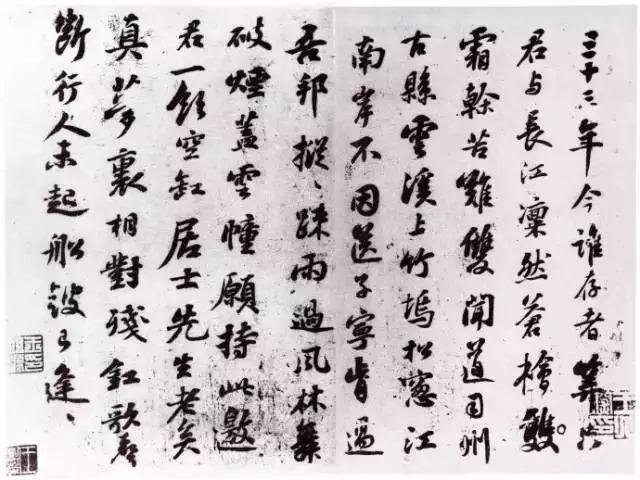 三十三年今誰存者算只
君与長江凛然蒼檜雙
霜幹苦難雙聞道司州
古縣雲溪上竹塢松窓江
南岸不因送子寧肯過
吾邦摐〻踈雨過風林舞
破煙蓋雲幢願持此邀
君一飲空缸居士先生老矣
真夢裏相對殘釭歌聲
斷行人未起船鼓已逄〻